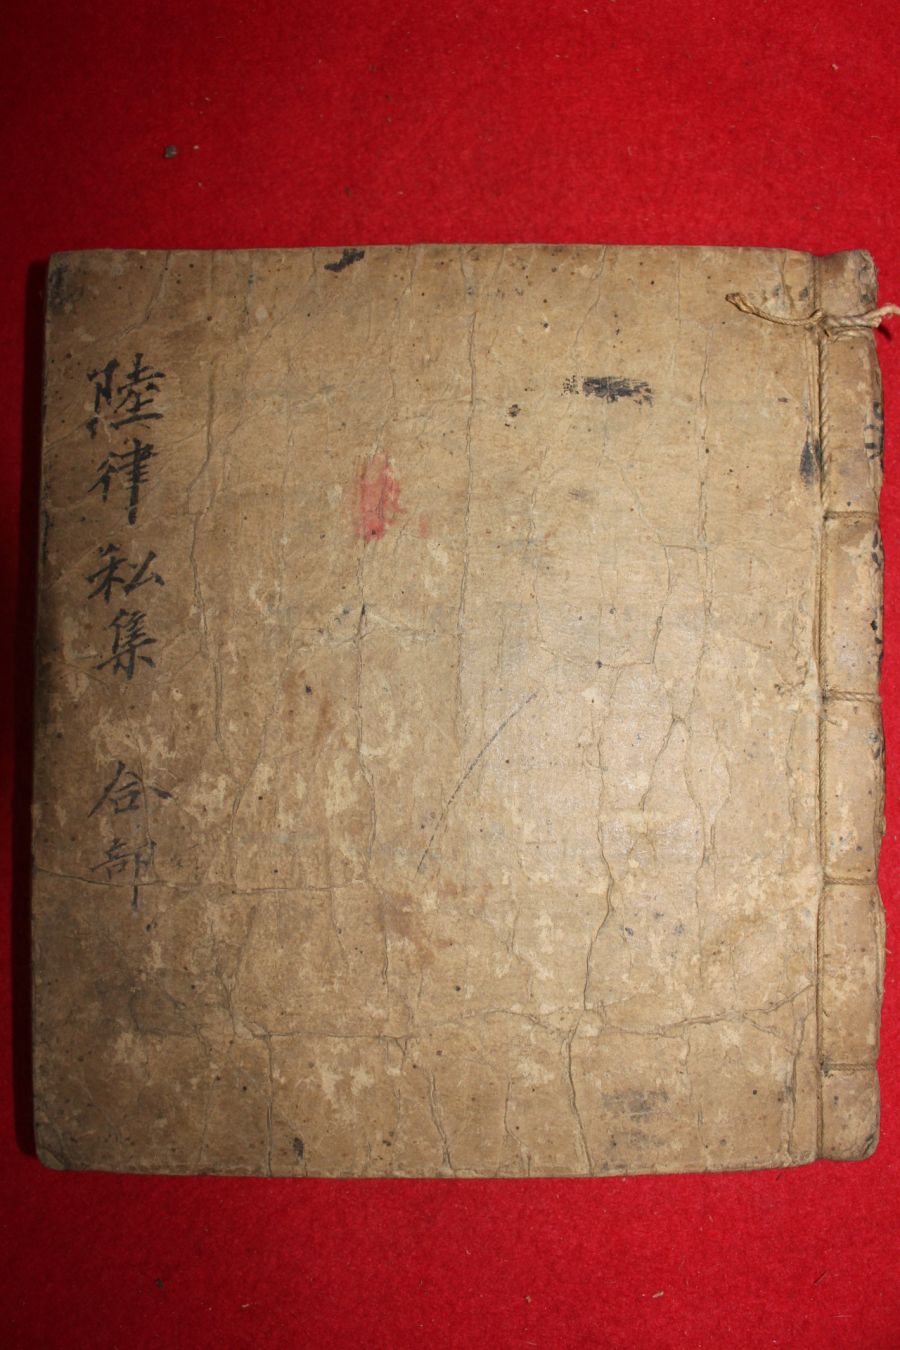 陸律私集 合部